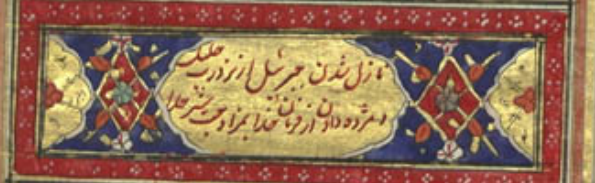 نازل شدن جبرئیل از نزد رب جلیل
و مژده دادن از فرمان خدا بمزاوجت